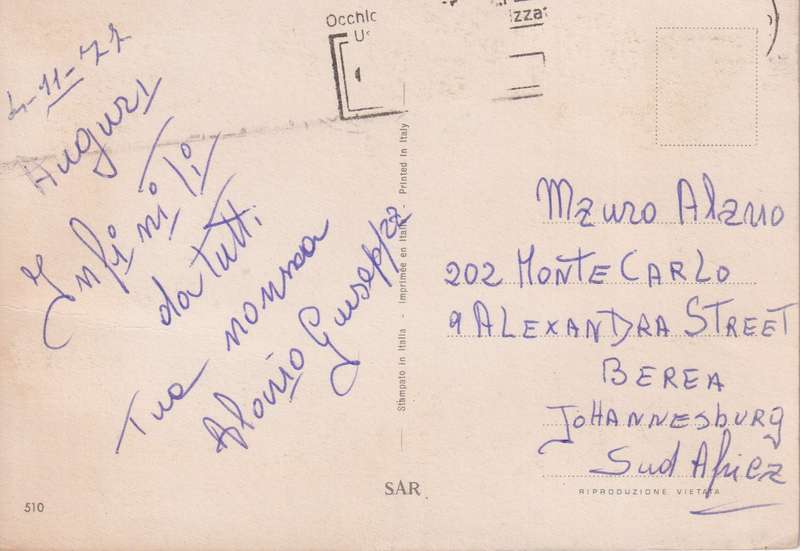 4-11-77
Auguri
Infiniti
da tutti
Tua nonna
Alovio Giuseppa
Occhio
Stampato in Italia - Imprimée en Italie - Printed in Italy
Mauro
202 MONTE CARLO
9 ALEXANDRA STREET
BEREA
JOHANNESBURG
Sud Africa
SAR
RIPRODUZIONE VIETATA
510